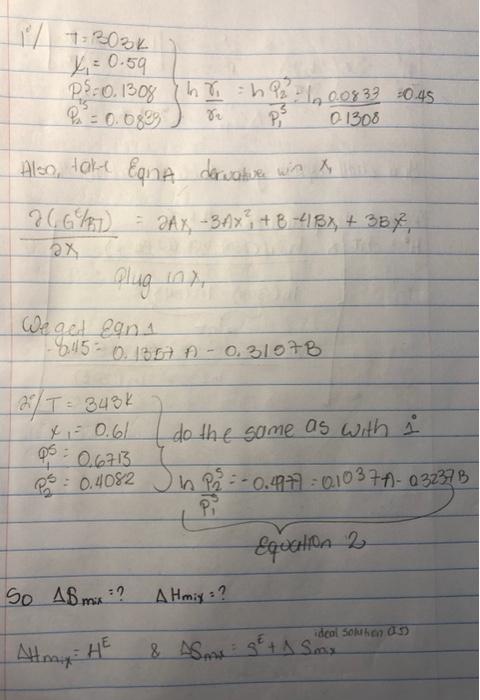 1°/ T = 303K
x₁ = 0.59
P₁ˢ = 0.1308
P₂ˢ = 0.0833
ln γ₁/γ₂ = ln P₂ˢ/P₁ˢ = ln 0.0833/0.1308 = -0.45
Also, take Eqn A derivative x₁
∂(Gᴱ/RT)/∂x₁ = 2Ax₁ - 3Ax₁² + B - 4Bx₁ + 3Bx₁²
plug in x₁
We get Eqn 1
-0.45 = 0.1357 A - 0.3107 B
2°/ T = 343K
x₁ = 0.61
P₁ˢ = 0.6713
P₂ˢ = 0.4082
do the same as with 1
ln P₂ˢ/P₁ˢ = -0.4977 = 0.1037A - 0.3237B
Equation 2
So ΔSmix = ? ΔHmix = ?
ΔHmix = Hᴱ & ΔSmix = Sᴱ + ΔSmix ideal solution